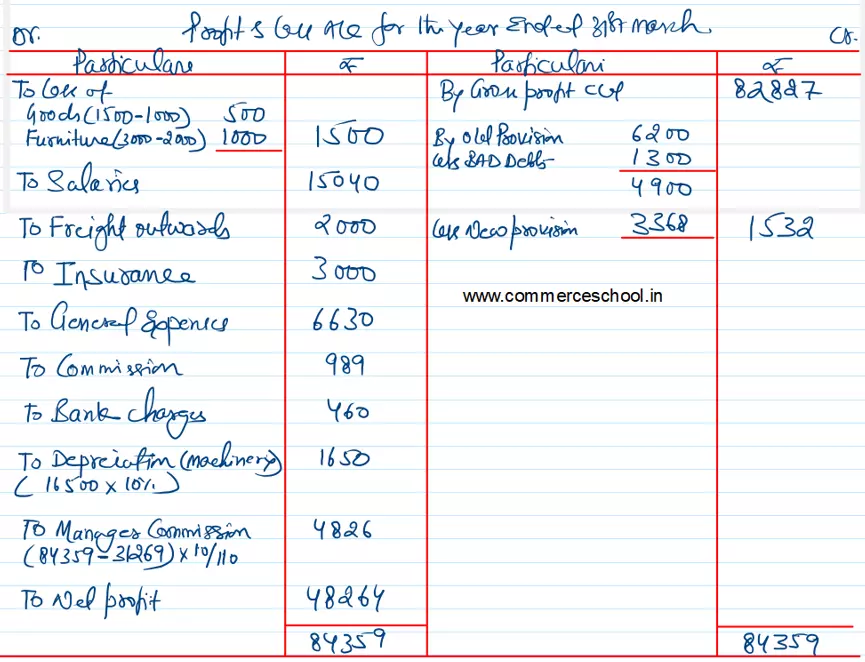 Profit & Loss A/c for the year Ended 31st March
Dr. Cr.
Particulars ₹ Particulars ₹
To Loss of By Gross profit c/d 82827
Goods (1500-1000) 500
Furniture (3000-2000) 1000 1500 By Old Provision 6200
Less BAD Debts 1300
To Salaries 15040 4900
To Freight outwards 2000 Less New provision 3368 1532
To Insurance 3000
www.commerceschool.in
To General Expenses 6630
To Commission 989
To Bank charges 460
To Depreciation (machinery) 1650
(16500 x 10%)
To Manages Commission 4826
(84359-31269) x 10/110
To Net profit 48264
84359 84359